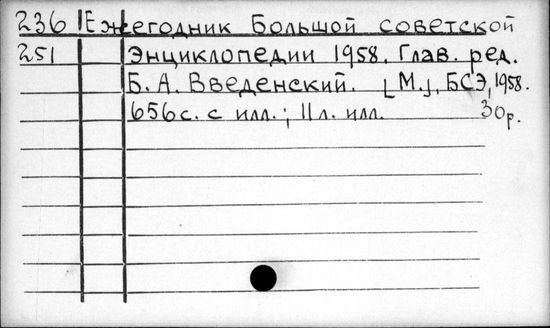 236 Ежегодник Большой советской
251 Энциклопедии 1958. Глав. ред.
Б. А. Введенский. [М.], БСЭ, 1958.
656с. с илл.; 11л. илл. 30р.